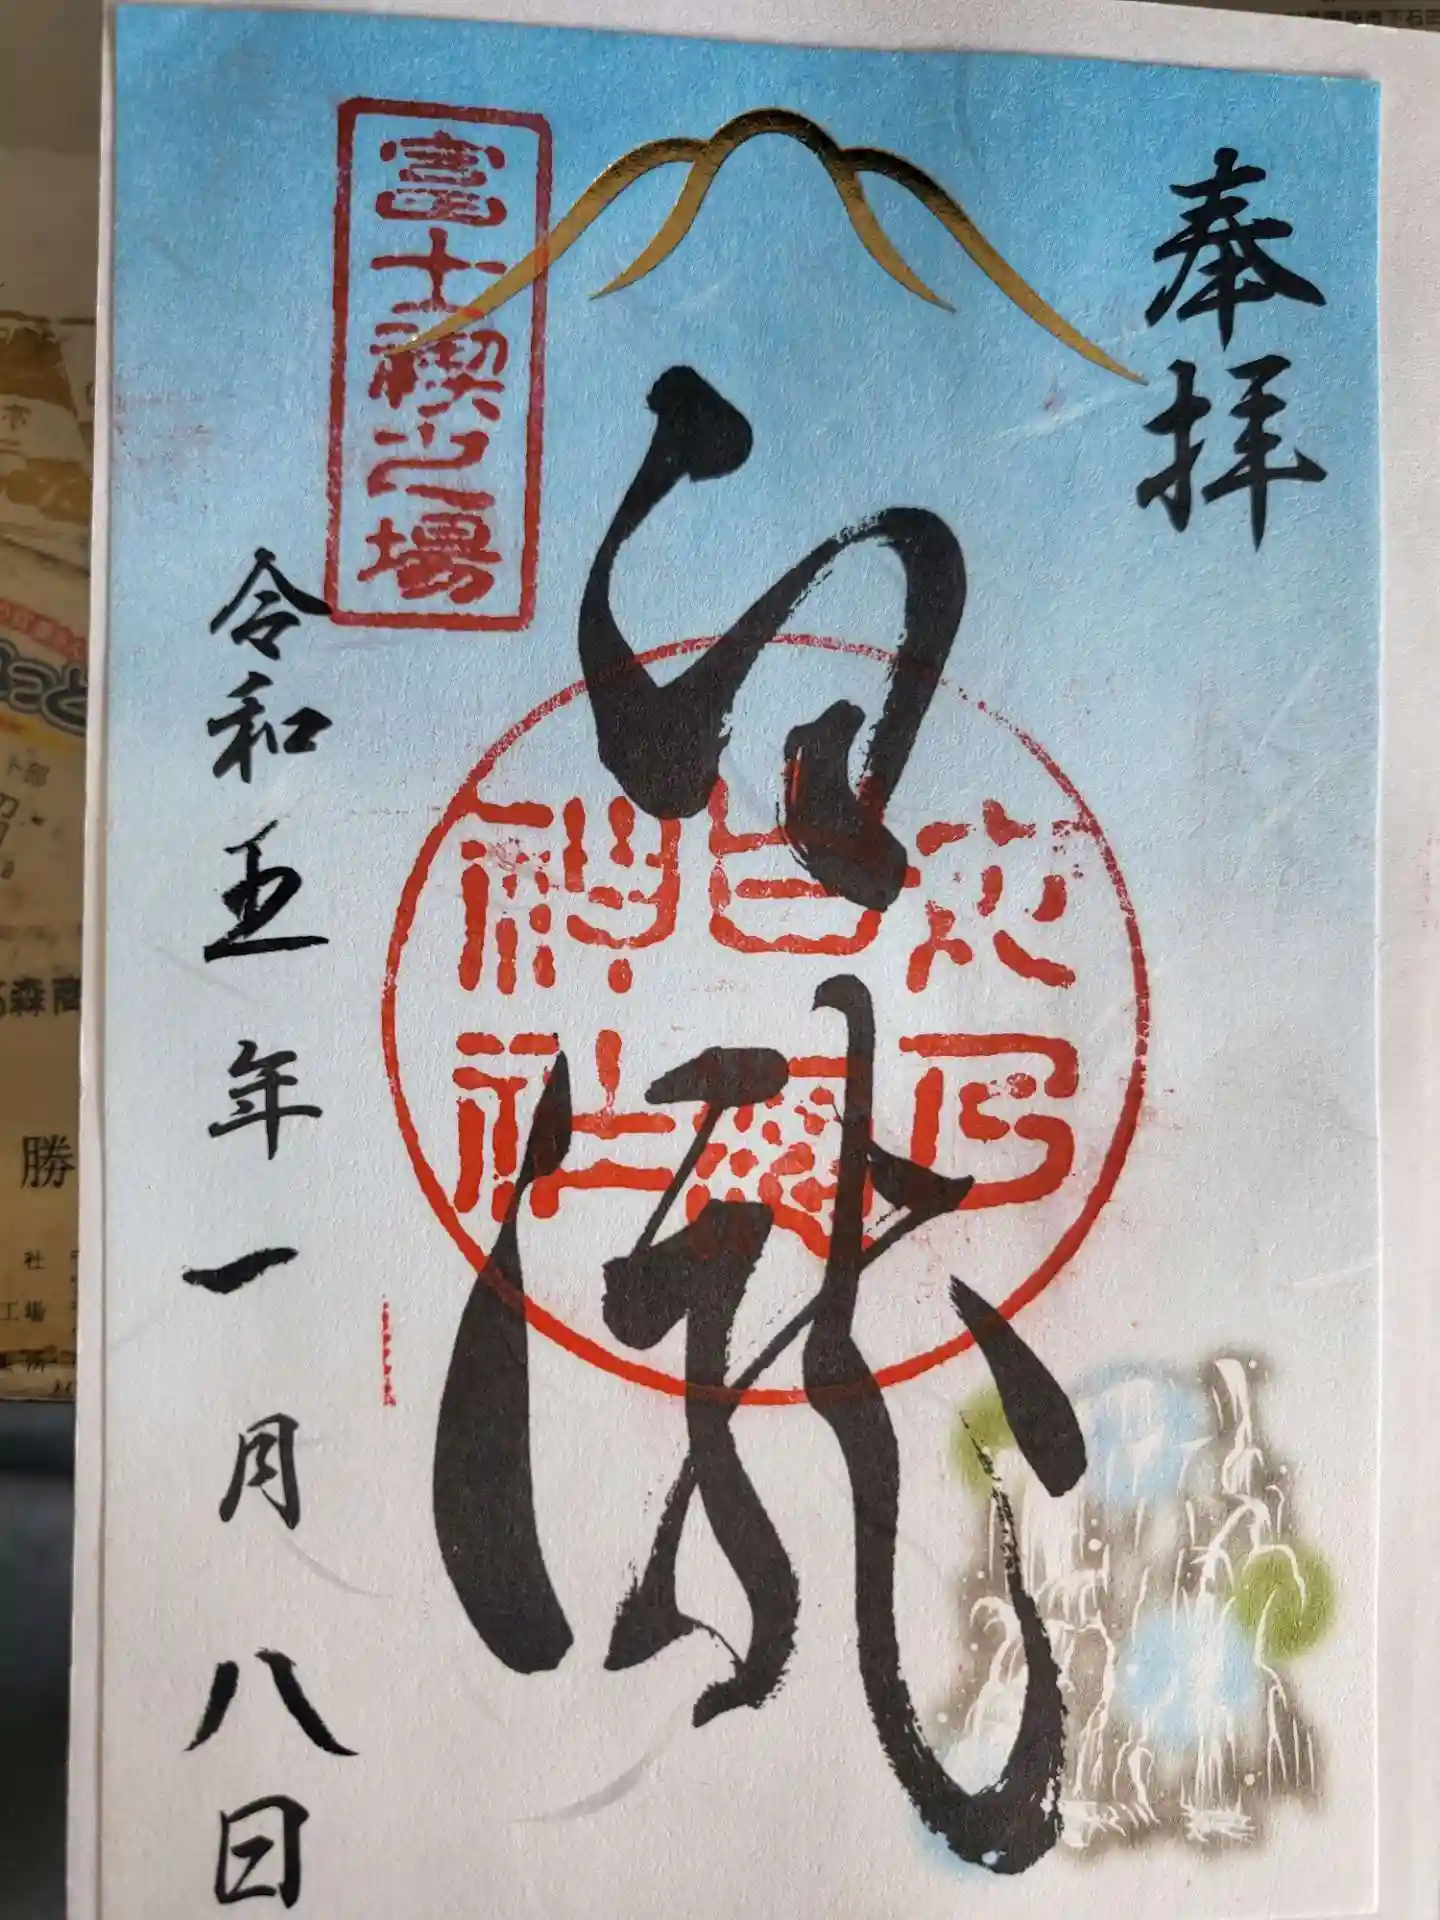 奉拝
富士禊之場
白瀧
父乃
白瀧
神社
令和五年一月八日
森商
勝
社
工場